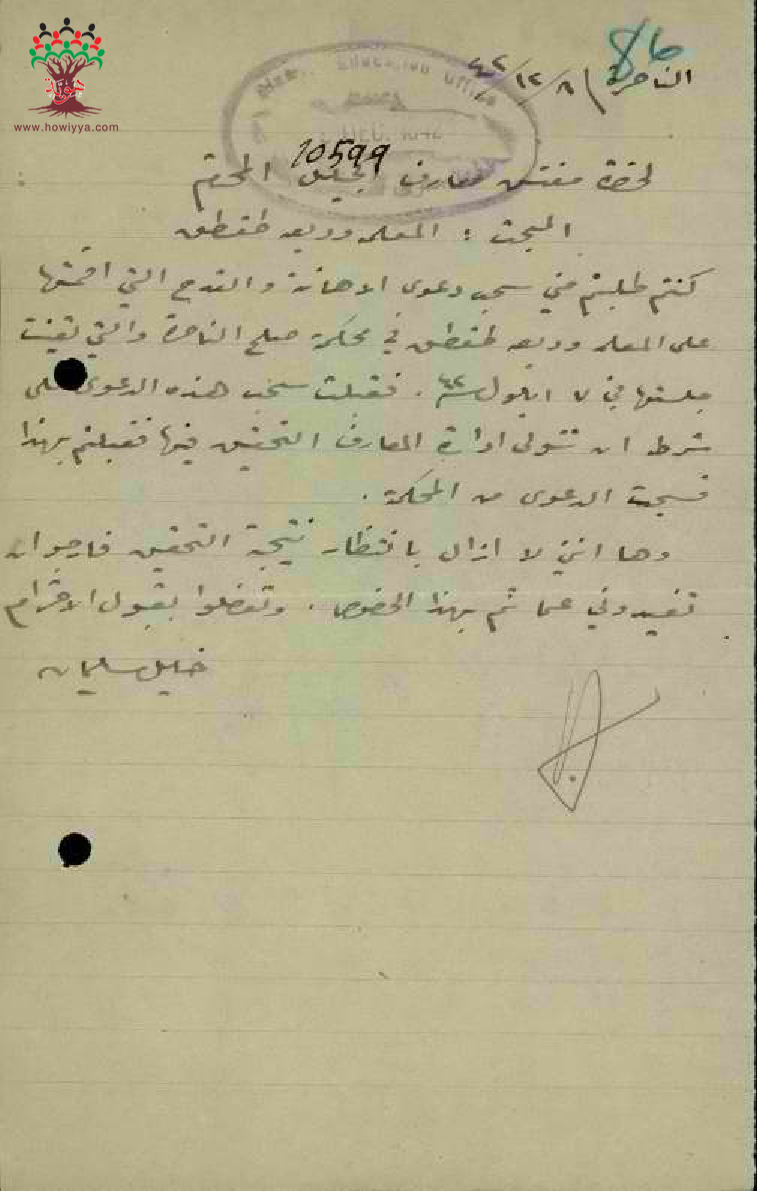 86
الناصرة ٨/١٢/٤٢
www.howiyya.com
Education Office
DEC. 1942
10599
لحضرة مفتش معارف الجليل المحترم
المبحث : المعلم وديع طنطق
كنتم طلبتم مني سحب دعوى الاهانة والقدح التي اقمتها
على المعلم وديع طنطق في محكمة صلح الناصرة والتي تعينت
جلستها في ٧ ايلول سنة ٤٢ . فقبلت سحب هذه الدعوى على
شرط ان تتولى ادارة المعارف التحقيق فيها فقبلتم بهذا
فسحبت الدعوى من المحكمة .
وها انني لا ازال بانتظار نتيجة التحقيق فارجو ان
تفيدوني عما تم بهذا الخصوص . وتفضلوا بقبول الاحترام
خليل سليمان